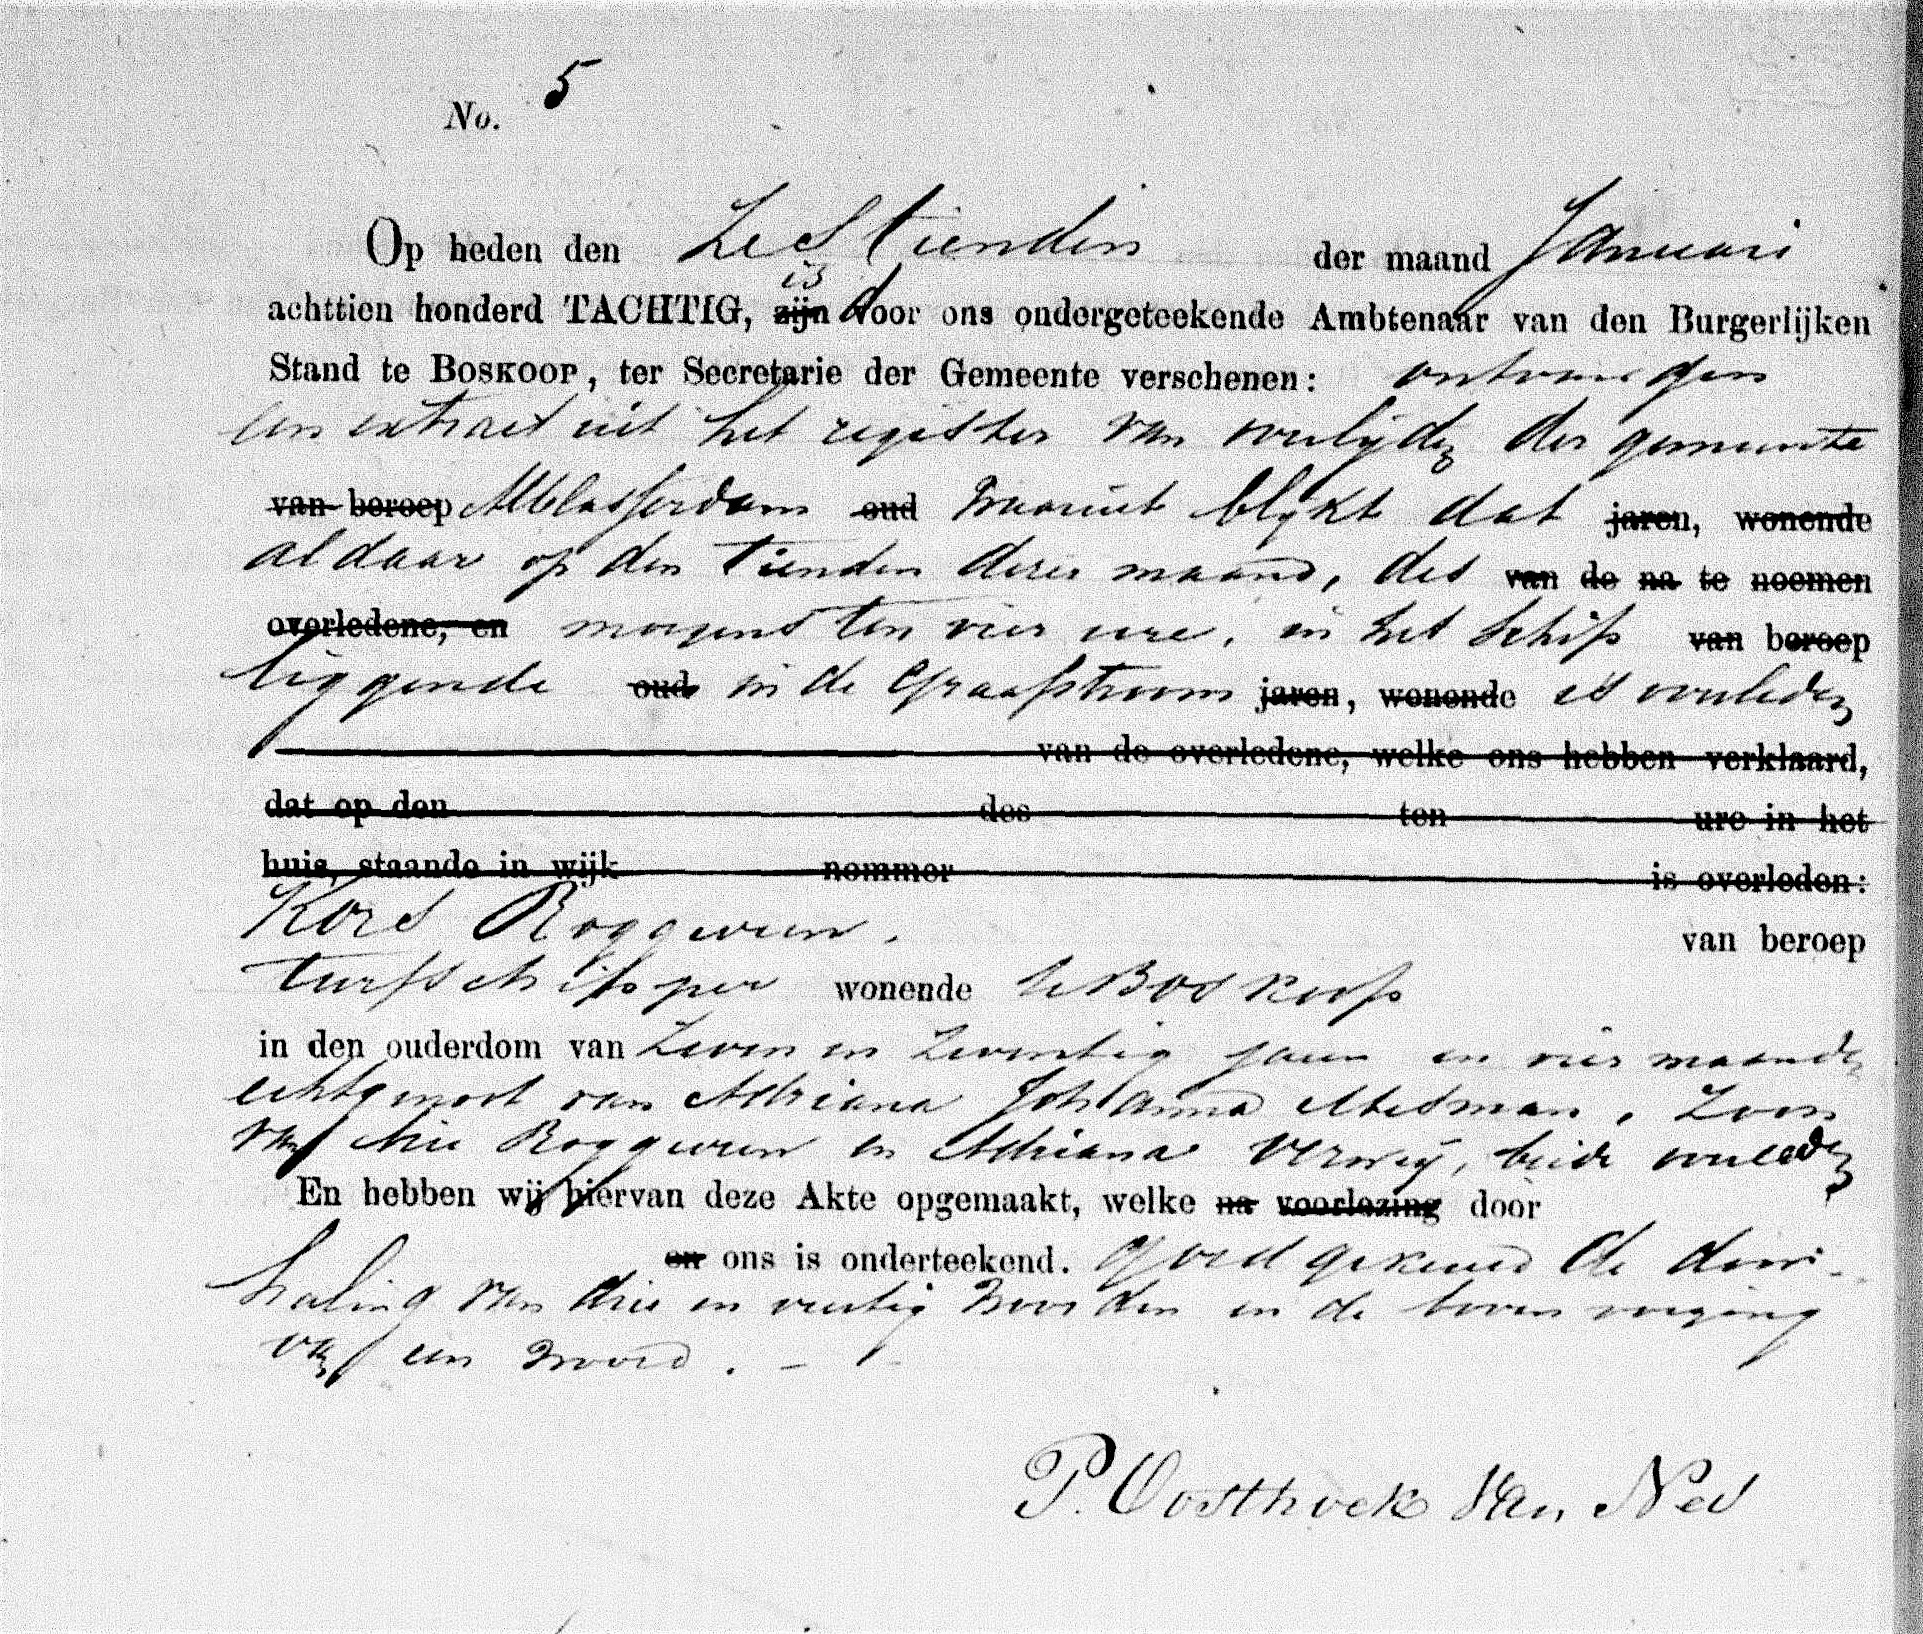 No. 5
Op heden den Zestienden der maand Januari
is
achttien honderd TACHTIG, zijn door ons ondergeteekende Ambtenaar van den Burgerlijken
Stand te BOSKOOP, ter Secretarie der Gemeente verschenen: ontvangen
een extract uit het register van overlijden der gemeente
van beroep Alblasserdam oud waaruit blykt dat jaren, wonende
aldaar op den tienden dezer maand, des van de na te noemen
overledene, en morgens ten vier ure, in het schip van beroep
liggende oud in de Graafstroom jaren, wonende is overleden
van de overledene, welke ons hebben verklaard,
dat op den des ten ure in het
huis, staande in wijk nommer is overleden:
Kors Roggeveen. van beroep
turfschipper wonende te Boskoop
in den ouderdom van Zeven en Zeventig jaren en vier maanden
echtgenoot van Adriana Johanna Mesman, Zoon
van Arie Roggeveen en Adriana Verweij, beide overleden
En hebben wij hiervan deze Akte opgemaakt, welke na voorlezing door
en ons is onderteekend. Goedgekeurd de door-
haling van drie en veertig woorden en de boven voeging
van een woord. -
P. Oosthoek Van Nes